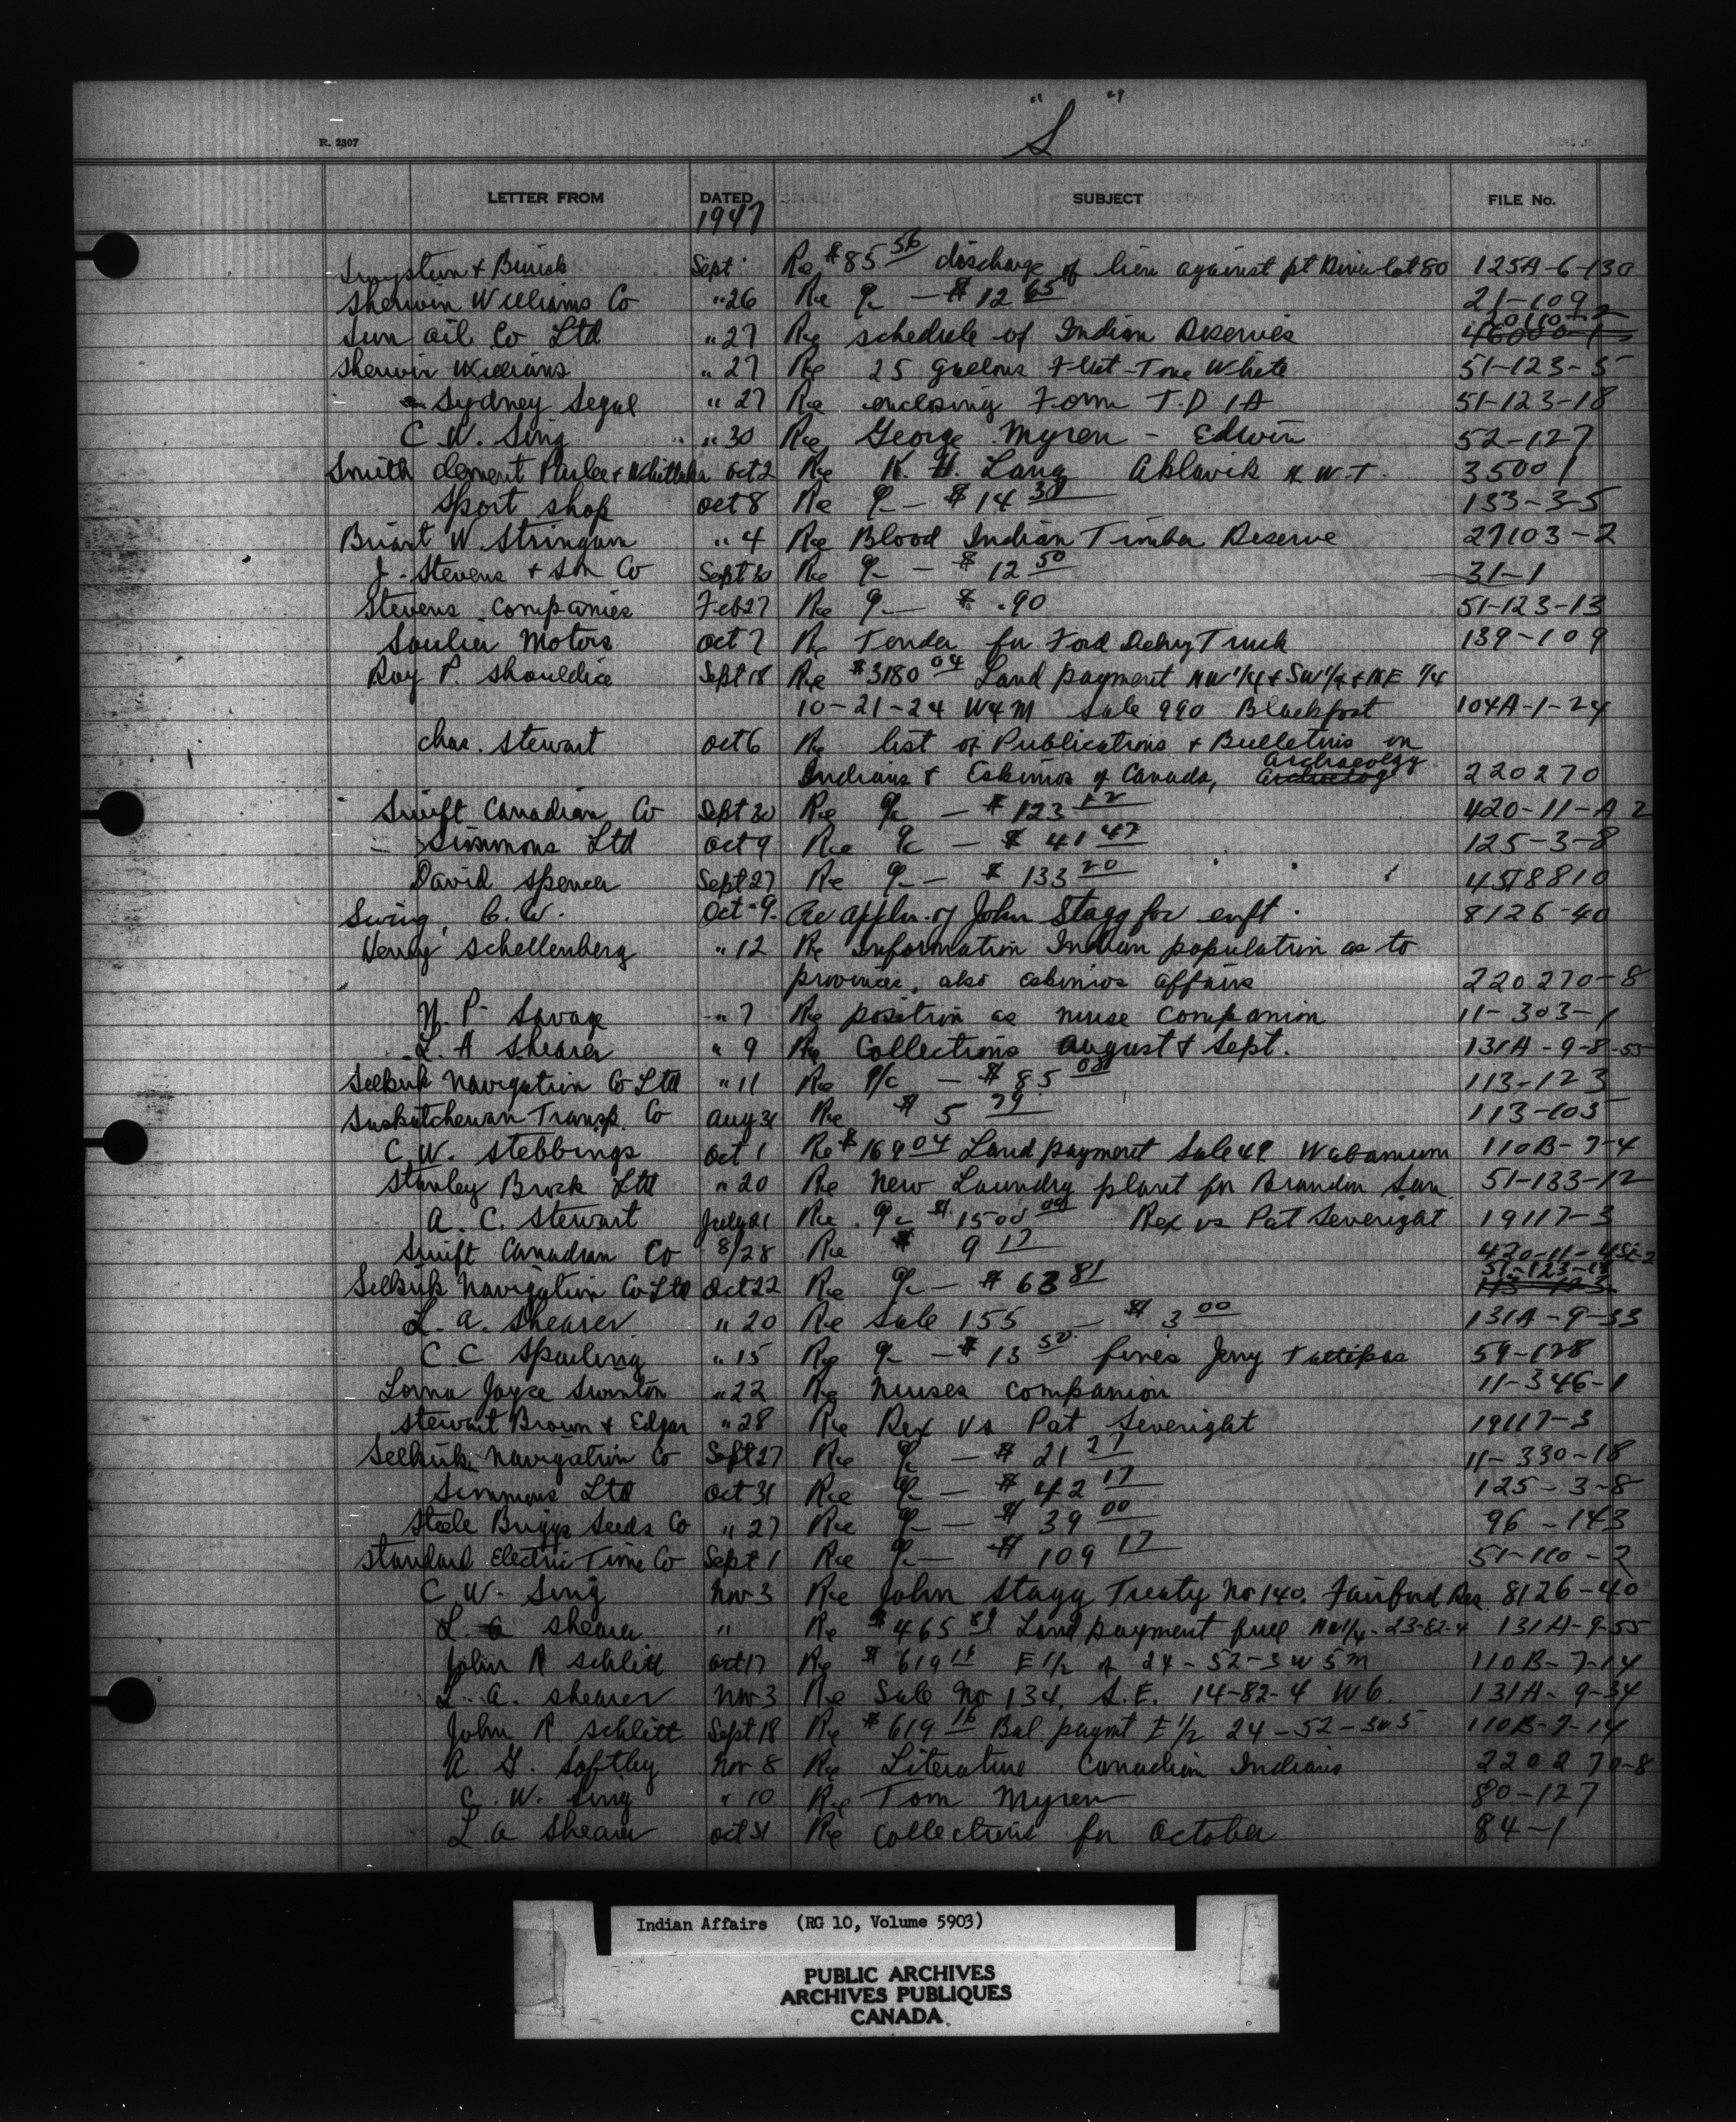 "S"
R. 2307
LETTER FROM DATED SUBJECT FILE No.
1947
& Burick Sept Re $85 56 discharge of lien against pt River lot 80 125A-6-130
Sherwin Williams Co "26 Re a/c — $12 65 21-109
Sun Oil Co Ltd "27 Re schedule of Indian Reserves
Sherwin Williams "27 Re 25 gallons Flat-Tone White 51-123-5
Sydney Segal "27 Re enclosing Form T.D 1A 51-123-18
C. W. Sing "30 Re George Myren - Edwin 52-127
Smith Clement Parlee & Whittaker Oct 2 Re K. H. Lang Aklavik N.W.T. 35001
Sport Shop Oct 8 Re a/c — $14 30 133-3-5
W. Stringam "4 Re Blood Indian Timber Reserve 27103-2
J. Stevens & Son Co Sept 30 Re a/c — $12 50 31-1
Stevens Companies Feb 27 Re a/c — $ .90 51-123-13
Motors Oct 7 Re Tender for Ford Delivy Truck 139-109
Roy P. Shouldice Sept 18 Re $3180 04 Land payment NW 1/4 & SW 1/4 & NE 1/4
10-21-24 W4M Sale 990 Blackfoot 104A-1-24
Chas. Stewart Oct 6 Re list of Publications & Bulletins on
Archaeology
Indians & Eskimos of Canada, 220270
Swift Canadian Co Sept 30 Re a/c — $123 12 420-11-A 2
Simmons Ltd Oct 9 Re a/c — $41 47 125-3-8
David Spencer Sept 27 Re a/c — $133 20
Swing, C. W. Oct 9 Re appln. of John Stagg for enft. 8126-40
Henry Schellenberg "12 Re Information Indian population as to
provinces, also eskimos affairs 220270-8
N. P. Savage "7 Re position as nurse companion 11-303-1
L. A Shearer "9 Re Collections August & Sept. 131A-9-8-55
Selkirk Navigation Co Ltd "11 Re a/c — $85 08 113-123
Saskatchewan Transp. Co Aug 31 Re $5 79 113-105
C. W. Stebbings Oct 1 Re $169 04 Land payment Sale 49 Wabamum 110B-7-4
Stanley Brock Ltd "20 Re New Laundry plant for Brandon San. 51-133-12
A. C. Stewart July 21 Re a/c $1500 00 Rex vs Pat Severight 19117-3
Swift Canadian Co 8/28 Re $9 17
Selkirk Navigation Co Ltd Oct 22 Re a/c — $63 81 51-123-18
L. A. Shearer "20 Re Sale 155 — $3 00 131A-9-33
C C Sparling "15 Re a/c — $13 50 fines Jerry 59-128
Lorna Joyce Swinton "22 Re Nurses Companion 11-346-1
Stewart Brown & Edgar "28 Re Rex Vs Pat Severight 19117-3
Selkirk Navigation Co Sept 27 Re a/c — $21 27 11-330-18
Simmons Ltd Oct 31 Re a/c — $42 17 125-3-8
Steele Briggs Seeds Co "27 Re a/c — $39 00 96-143
Standard Electric Time Co Sept 1 Re a/c — $109 17 51-110-2
C. W. Sing Nov 3 Re John Stagg Treaty No 140. Fairford Res. 8126-40
L. A Shearer " Re $465 89 Land payment full NW1/4-23-82-4 131A-9-55
John R Schlitt Oct 17 Re $619 16 E 1/2 of 24-52-3 W 5 M 110B-7-14
L. A. Shearer Nov 3 Re Sale No 134, S.E. 14-82-4 W6. 131A-9-34
John R Schlitt Sept 18 Re $619 16 Bal paymt E 1/2 24-52-3 W 5 110B-7-14
A G. Softley Nov 8 Re Literature Canadian Indians 220270-8
C. W. Sing "10 Re Tom Myren 80-127
L A Shearer Oct 31 Re Collections for October 84-1
Indian Affairs (RG 10, Volume 5903)
PUBLIC ARCHIVES
ARCHIVES PUBLIQUES
CANADA